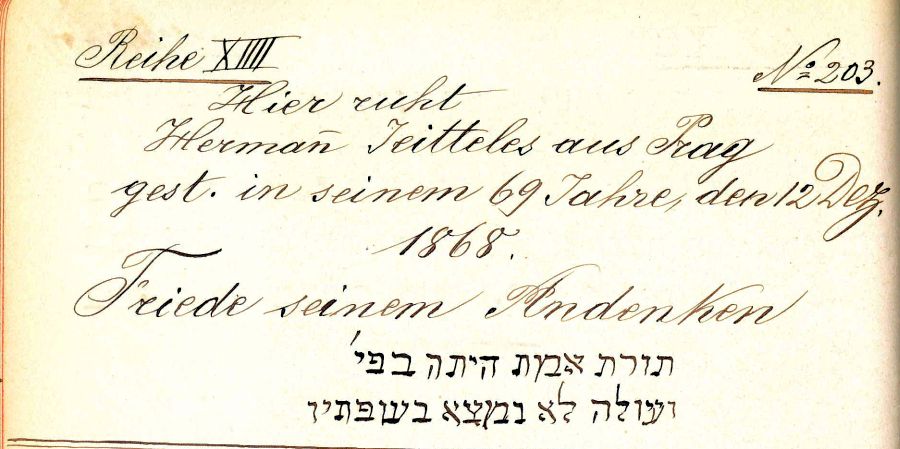 Reihe XIIII
No 203.
Hier ruht
Herman̅ Jeitteles aus Prag
gest. in seinem 69 Jahre, den 12 Dez.
1868.
Friede seinem Andenken
תורת אמת היתה בפי'
ועולה לא נמצא בשפתיו